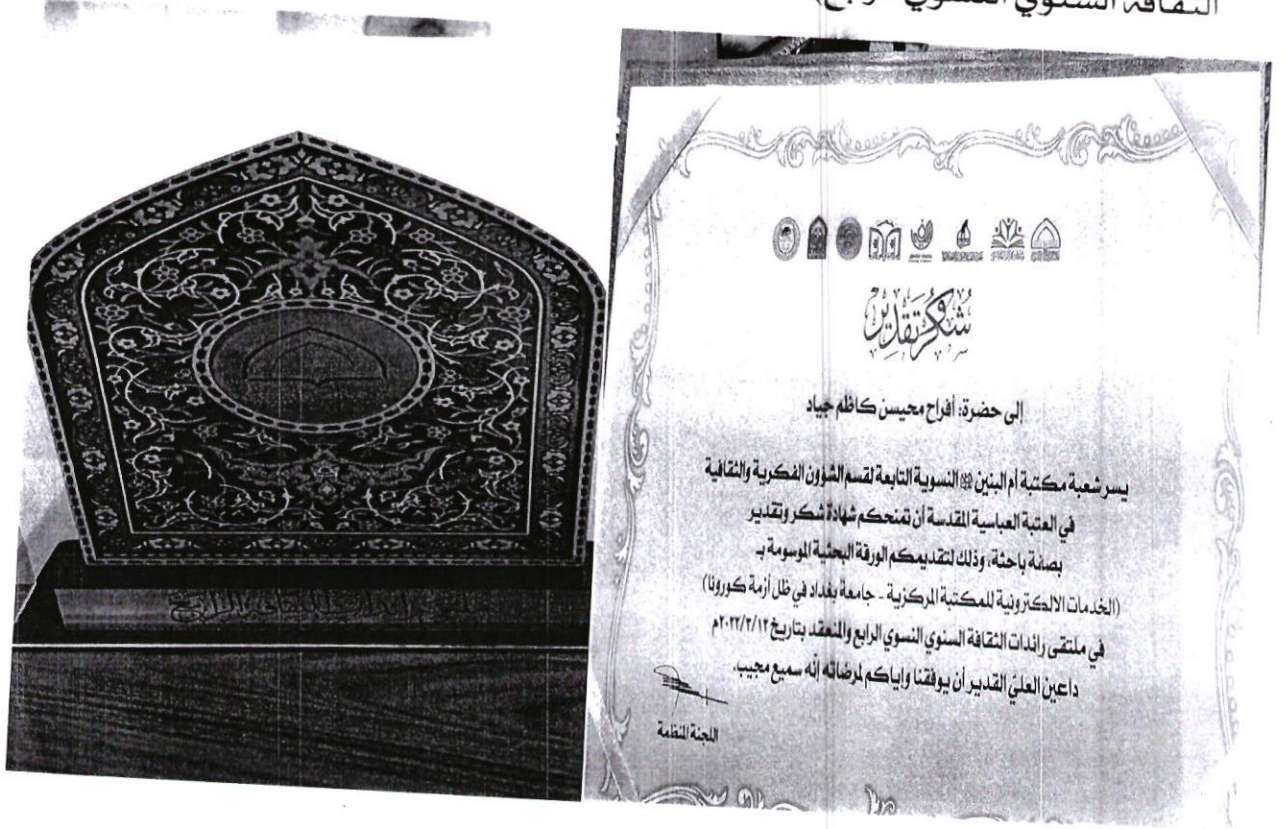 الثقافة السنوي النسوي
شكر وتقدير
إلى حضرة: أفراح محيسن كاظم جياد
يسر شعبة مكتبة أم البنين النسوية التابعة لقسم الشؤون الفكرية والثقافية
في العتبة العباسية المقدسة أن تمنحكم شهادة شكر وتقدير
بصفة باحثة، وذلك لتقديمكم الورقة البحثية الموسومة بـ
(الخدمات الالكترونية للمكتبة المركزية - جامعة بغداد في ظل أزمة كورونا)
في ملتقى رائدات الثقافة السنوي النسوي الرابع والمنعقد بتاريخ ٢٠٢٢/٢/١٢م
داعين العليّ القدير أن يوفقنا واياكم لمرضاته أنه سميع مجيب.
اللجنة المنظمة